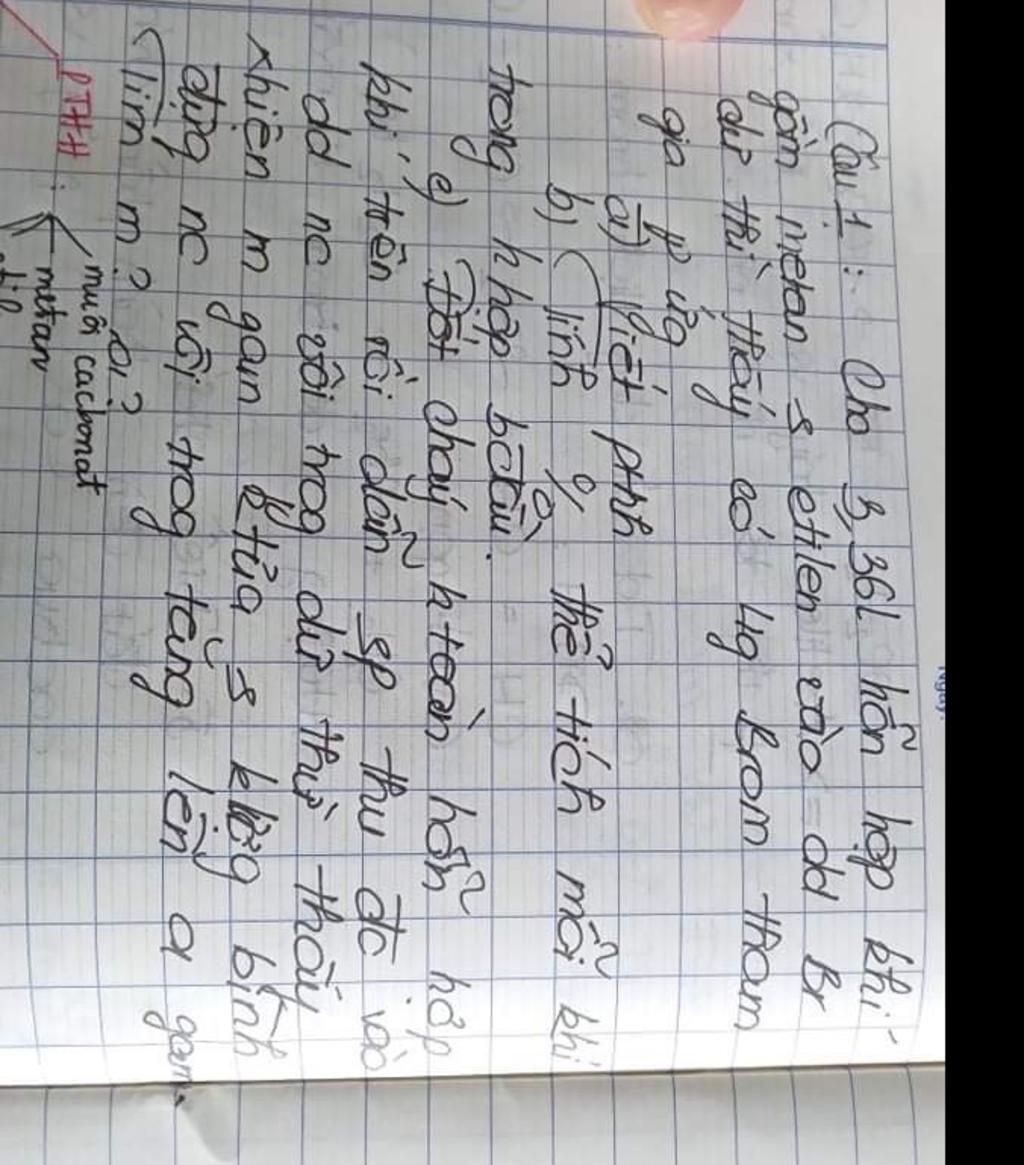 Câu 1: Cho 3,36l hỗn hợp khí
gồm metan & etilen vào dd Br
dư thì thấy có 4g Brom tham
gia p ứng
a) Viết pthh
b) Tính % thể tích mỗi khí
trong h hợp bđầu.
c) Đốt cháy h toàn hỗn hợp
khí trên rồi dẫn sp thu đc vào
dd nc vôi trog dư thì thấy
xhiện m gam ktủa & khlg bình
đựng nc vôi trog tăng lên a gam.
Tìm m? a?
PTHH:
muối cacbonat
metan